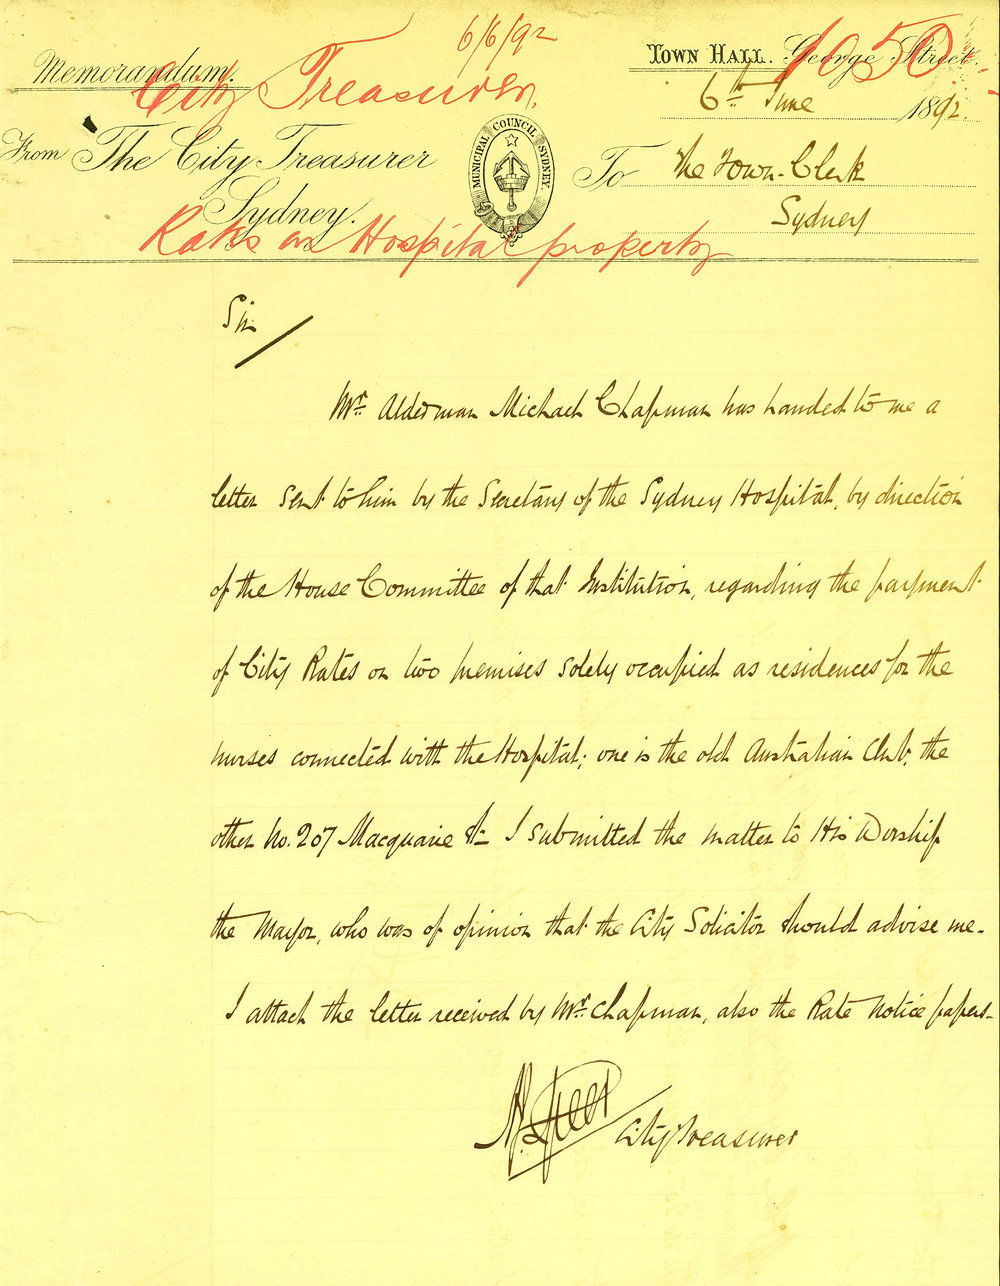 6/6/92
Memorandum.
City Treasurer.
TOWN HALL. George Street.
1050
6th June 1892.
From The City Treasurer
Sydney.
MUNICIPAL COUNCIL SYDNEY
To The Town-Clerk
Sydney
Rates on Hospital property
Sir
Mr. Alderman Michael Chapman has handed to me a
letter sent to him by the Secretary of the Sydney Hospital, by direction
of the House Committee of that Institution, regarding the payment
of City Rates on two premises solely occupied as residences for the
nurses connected with the Hospital; one is the old Australian Club, the
other No. 207 Macquarie St - I submitted the matter to His Worship
the Mayor, who was of opinion that the City Solicitor should advise me -
I attach the letter received by Mr. Chapman, also the Rate Notice papers -
City Treasurer